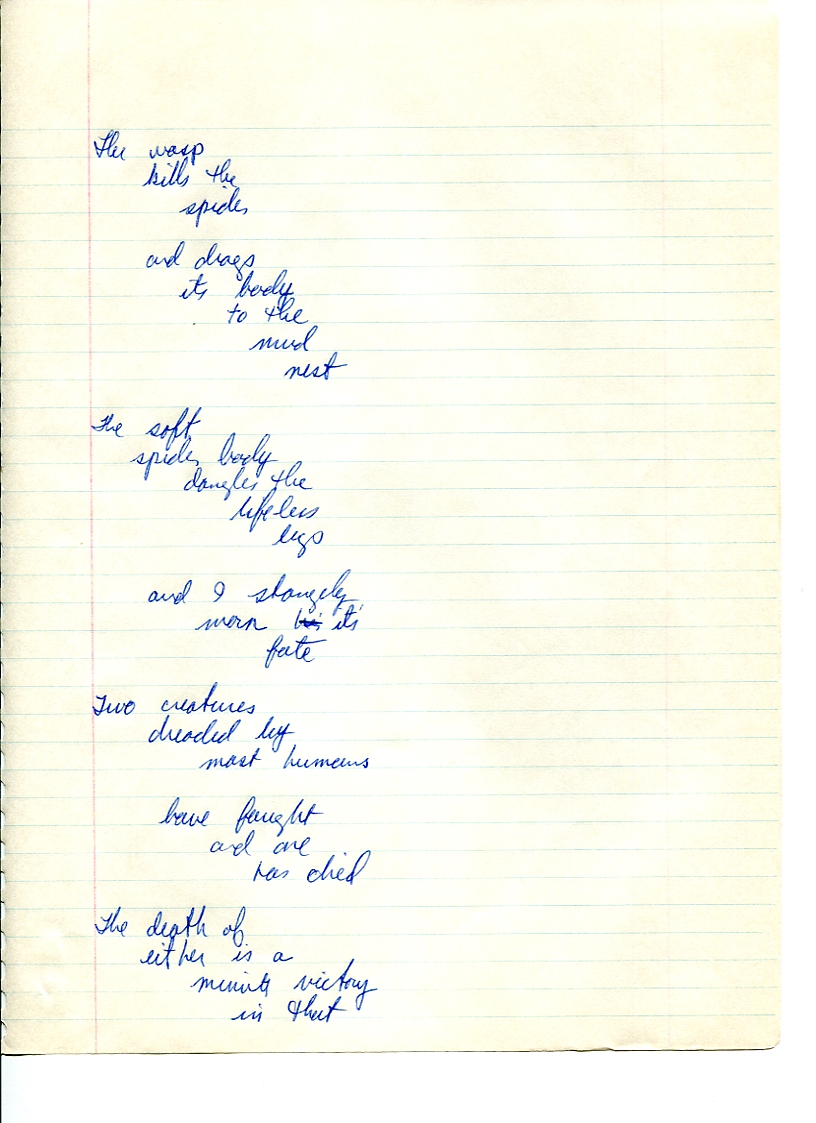 The wasp
kills the
spider
and drags
its body
to the
mud
nest
The soft
spider body
dangles the
lifeless
legs
and I stangely
morn his it's
fate
Two creatures
dreaded by
most humans
have faught
and one
has died
The death of
either is a
minute victory
in that